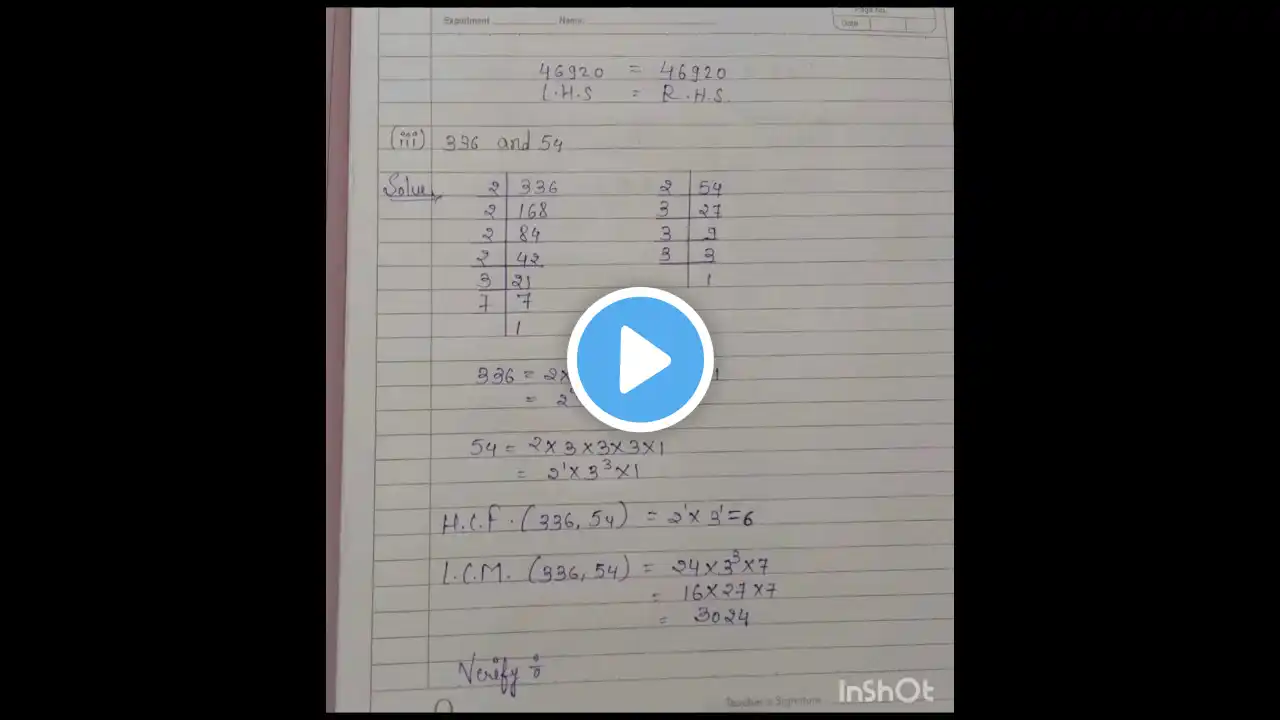 Experiment Name: Page No.
Date
46920 = 46920
L.H.S = R.H.S.
(iii) 336 and 54
Solve
2 336 2 54
2 168 3 27
2 84 3 9
2 42 3 3
3 21 1
7 7
1
336 = 2× 1
= 2
54 = 2×3×3×3×1
= 2¹×3³×1
H.C.F. (336, 54) = 2¹×3¹=6
L.C.M. (336, 54) = 24×3³×7
= 16×27×7
= 3024
Verify
Teacher's Signature
InShOt